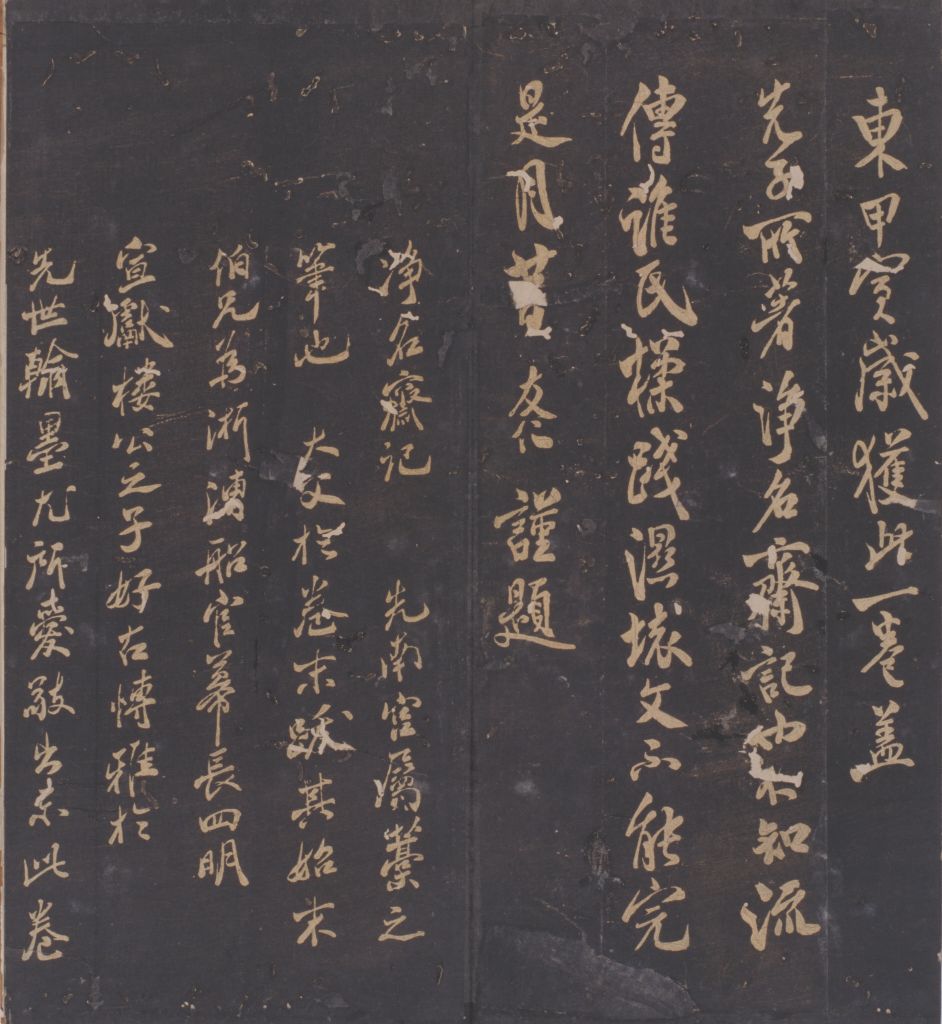 東甲寅歲獲此一卷蓋
先子所著淨名齋記也不知流
傳誰氏㩧踐濕壞文不能完
是月廿日友仁 謹題
淨名齋記 先南宮屬藁之
筆也 大父於卷末跋其始末
伯兄為浙漕船官幕長四明
宣獻樓公之子好古博雅於
先世翰墨尤所愛敬出示此卷